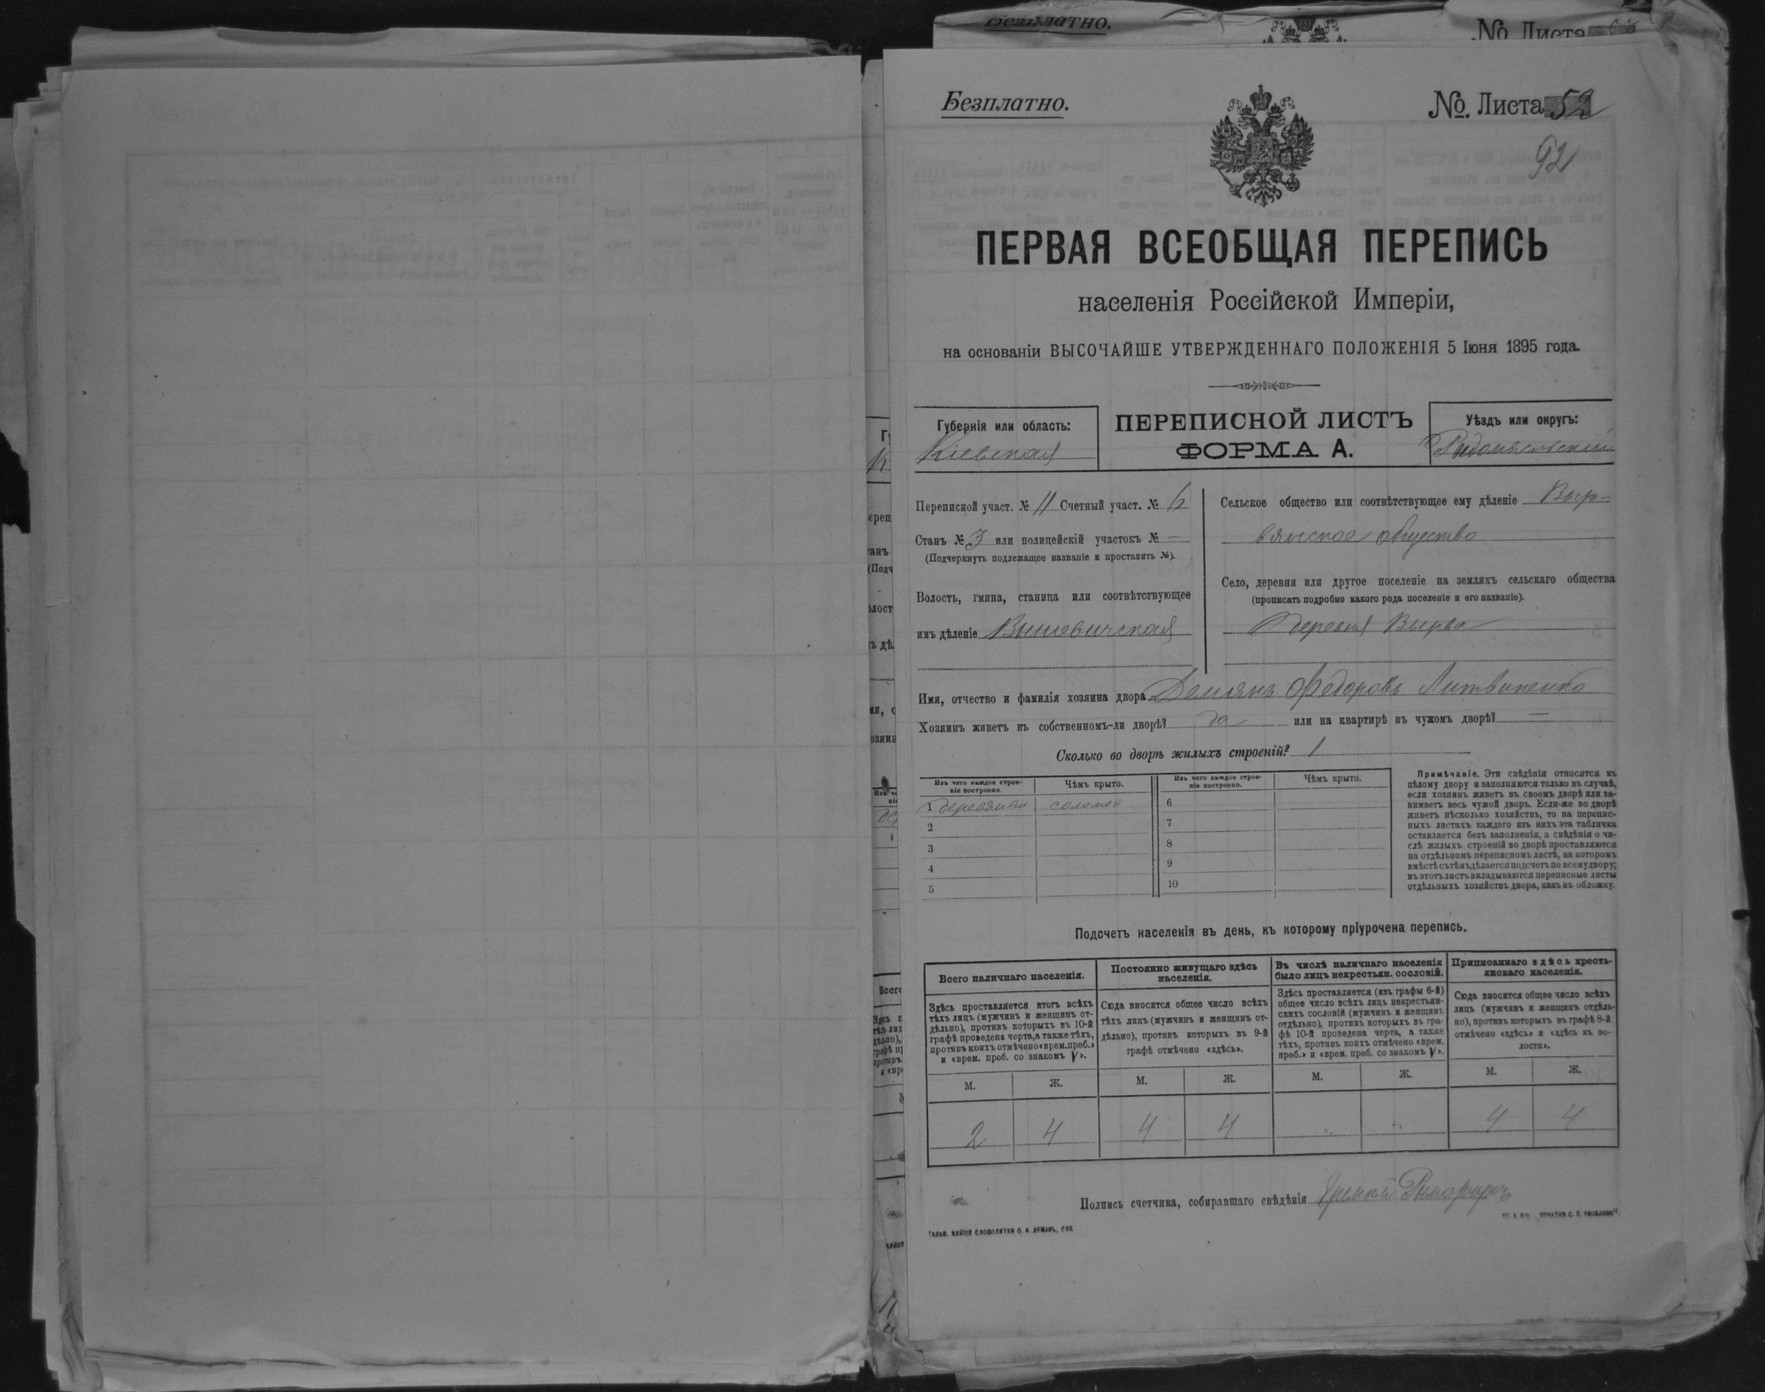 Безплатно.
№ Листа 52
92
ПЕРВАЯ ВСЕОБЩАЯ ПЕРЕПИСЬ
населенія Россійской Имперіи,
на основаніи ВЫСОЧАЙШЕ УТВЕРЖДЕННАГО ПОЛОЖЕНІЯ 5 Іюня 1895 года.
Губернія или область:
Кіевская
ПЕРЕПИСНОЙ ЛИСТЪ
ФОРМА А.
Уѣздъ или округъ:
Радомысльскій
Переписной участ. № 11 Счетный участ. №
Станъ № 3 или полицейскій участокъ № —
(Подчеркнуть подлежащее названіе и проставить №).
Волость, гмина, станица или соотвѣтствующее
имъ дѣленіе Вышевичская
Сельское общество или соотвѣтствующее ему дѣленіе Выр-
вянское общество
Село, деревня или другое поселеніе на земляхъ сельскаго общества
(прописать подробно какого рода поселеніе и его названіе).
деревня Вырва
Имя, отчество и фамилія хозяина двора Демянъ Федоровъ Литвиненко
Хозяинъ живетъ въ собственномъ-ли дворѣ? да или на квартирѣ въ чужомъ дворѣ? —
Сколько во дворѣ жилыхъ строеній? 1
Изъ чего каждое строе-
ніе построено.
Чѣмъ крыто.
Изъ чего каждое строе-
ніе построено.
Чѣмъ крыто.
1 деревянн соломой
2
3
4
5
6
7
8
9
10
Примѣчаніе. Эти свѣдѣнія относятся къ
цѣлому двору и заполняются только въ случаѣ,
если хозяинъ живетъ въ своемъ дворѣ или за-
нимаетъ весь чужой дворъ. Если-же во дворѣ
живетъ нѣсколько хозяйствъ, то на перепис-
ныхъ листахъ каждаго изъ нихъ эта табличка
оставляется безъ заполненія, а свѣдѣнія о чи-
слѣ жилыхъ строеній во дворѣ проставляются
на отдѣльномъ переписномъ листѣ, на которомъ
вмѣстѣ съ тѣмъ дѣлается подсчетъ по всему двору;
въ этотъ листъ вкладываются переписные листы
отдѣльныхъ хозяйствъ двора, какъ въ обложку.
Подсчетъ населенія въ день, къ которому пріурочена перепись.
Всего наличнаго населенія.
Здѣсь проставляется итогъ всѣхъ
тѣхъ лицъ (мужчинъ и женщинъ от-
дѣльно), противъ которыхъ въ 10-й
графѣ проведена черта, а также тѣхъ,
противъ коихъ отмѣчено «врем. преб.»
и «врем. преб. со знакомъ V».
Постоянно живущаго здѣсь
населенія.
Сюда вносится общее число всѣхъ
тѣхъ лицъ (мужчинъ и женщинъ от-
дѣльно), противъ которыхъ въ 9-й
графѣ отмѣчено «здѣсь».
Въ числѣ наличнаго населенія
было лицъ некрестьян. сословій.
Здѣсь проставляется (изъ графы 6-й)
общее число всѣхъ лицъ некрестьян-
скихъ сословій (мужчинъ и женщинъ
отдѣльно), противъ которыхъ въ гра-
фѣ 10-й проведена черта, а также
тѣхъ, противъ коихъ отмѣчено «врем.
преб.» и «врем. преб. со знакомъ V».
Приписаннаго здѣсь кресть-
янскаго населенія.
Сюда вносится общее число всѣхъ
лицъ (мужчинъ и женщинъ отдѣль-
но), противъ которыхъ въ графѣ 8-й
отмѣчено «здѣсь» и «здѣсь въ во-
лости».
М. Ж. М. Ж. М. Ж. М. Ж.
2 4 4 4 „ „ 4 4
Подпись счетчика, собиравшаго свѣдѣнія